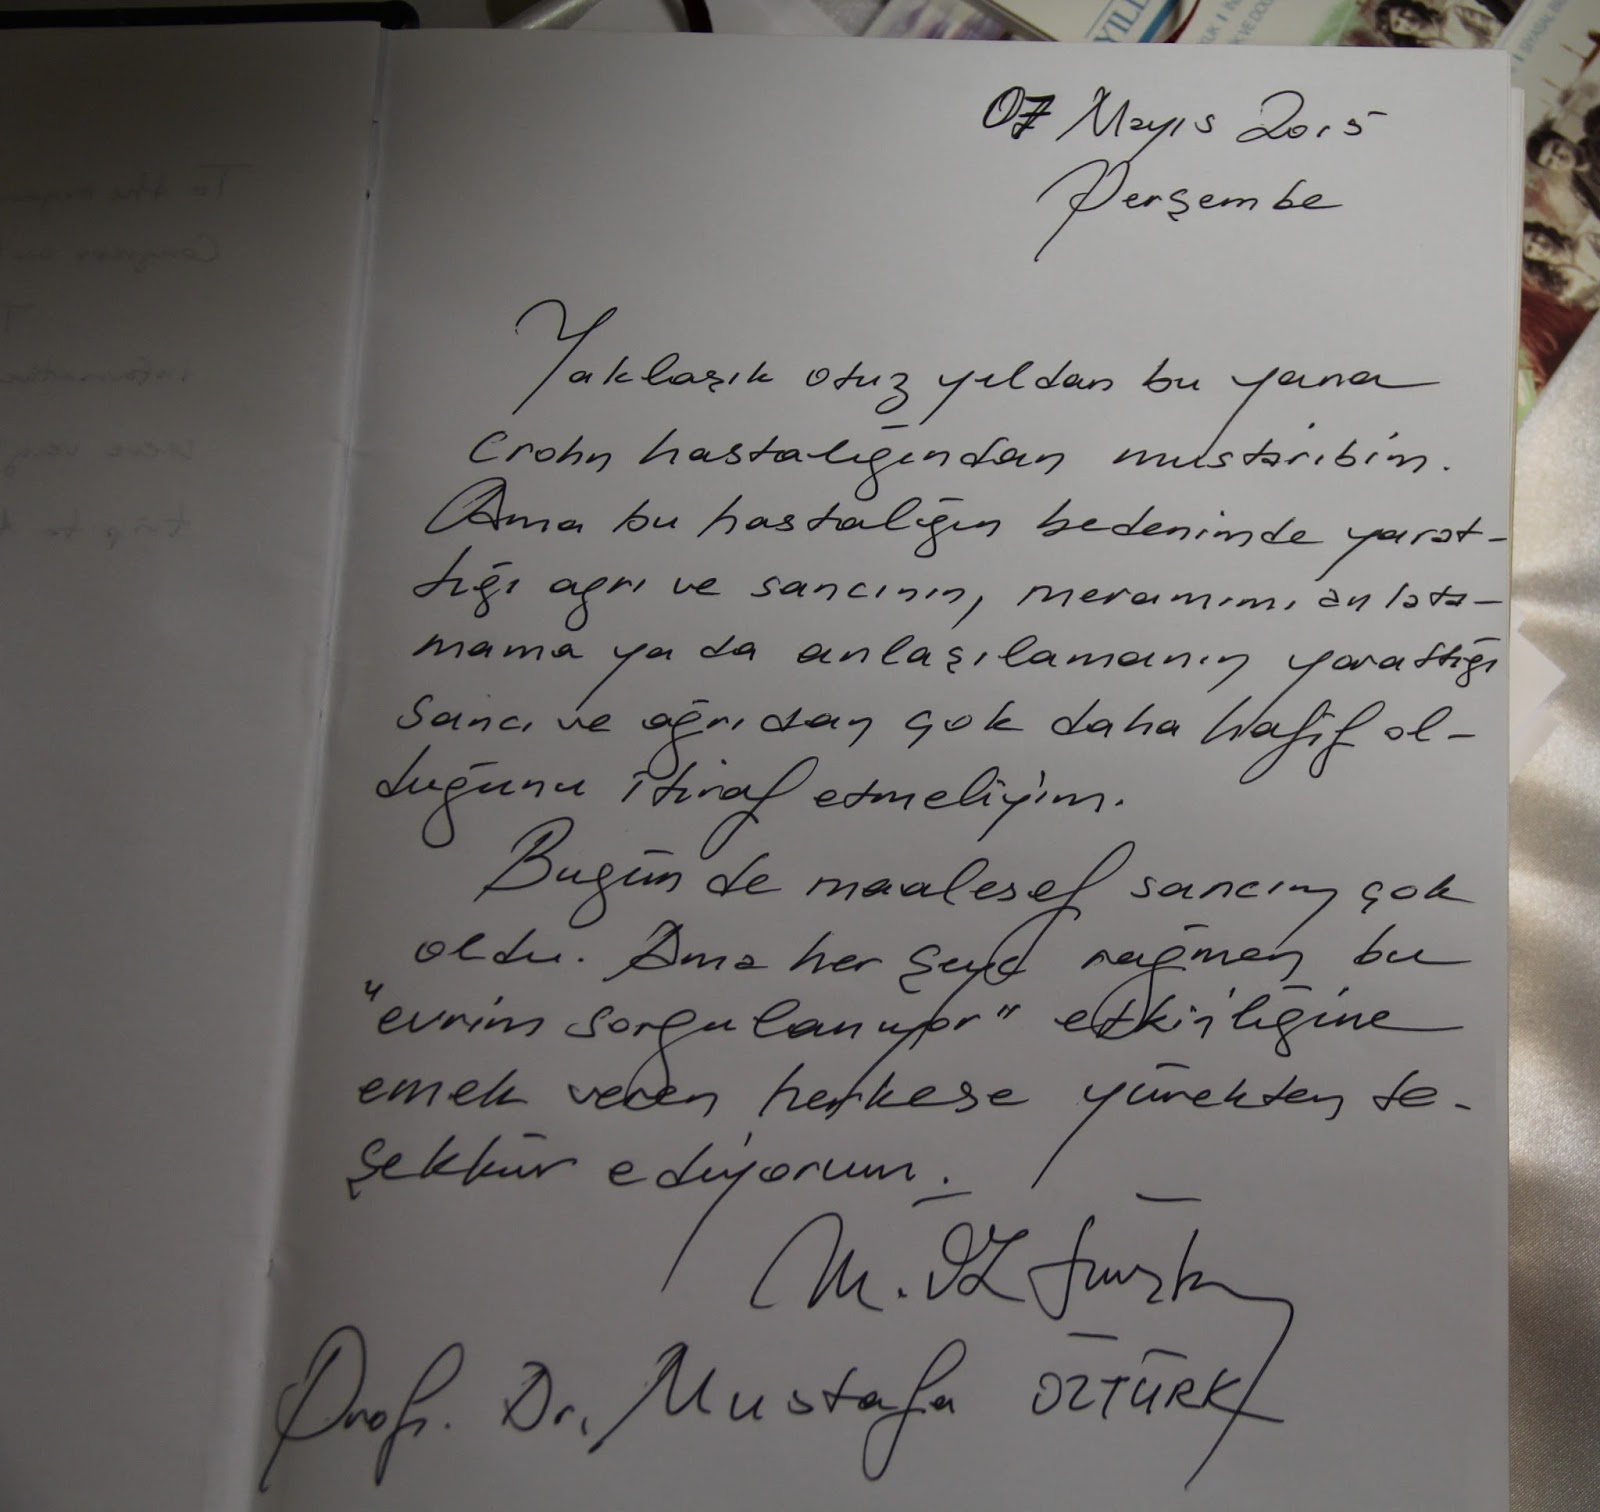 07 Mayıs 2015
Perşembe
Yaklaşık otuz yıldan bu yana
Crohn hastalığından mustaribim.
Ama bu hastalığın bedenimde yarat-
tığı ağrı ve sancının, meramımı anlata-
mama ya da anlaşılamanın yarattığı
sancı ve ağrıdan çok daha hafif ol-
duğunu itiraf etmeliyim.
Bugün de maalesef sancım çok
oldu. Ama her şeye rağmen bu
"evrim sorgulanıyor" etkinliğine
emek veren herkese yürekten te-
şekkür ediyorum.
M. Öztürk
Prof. Dr. Mustafa ÖZTÜRK
YILL